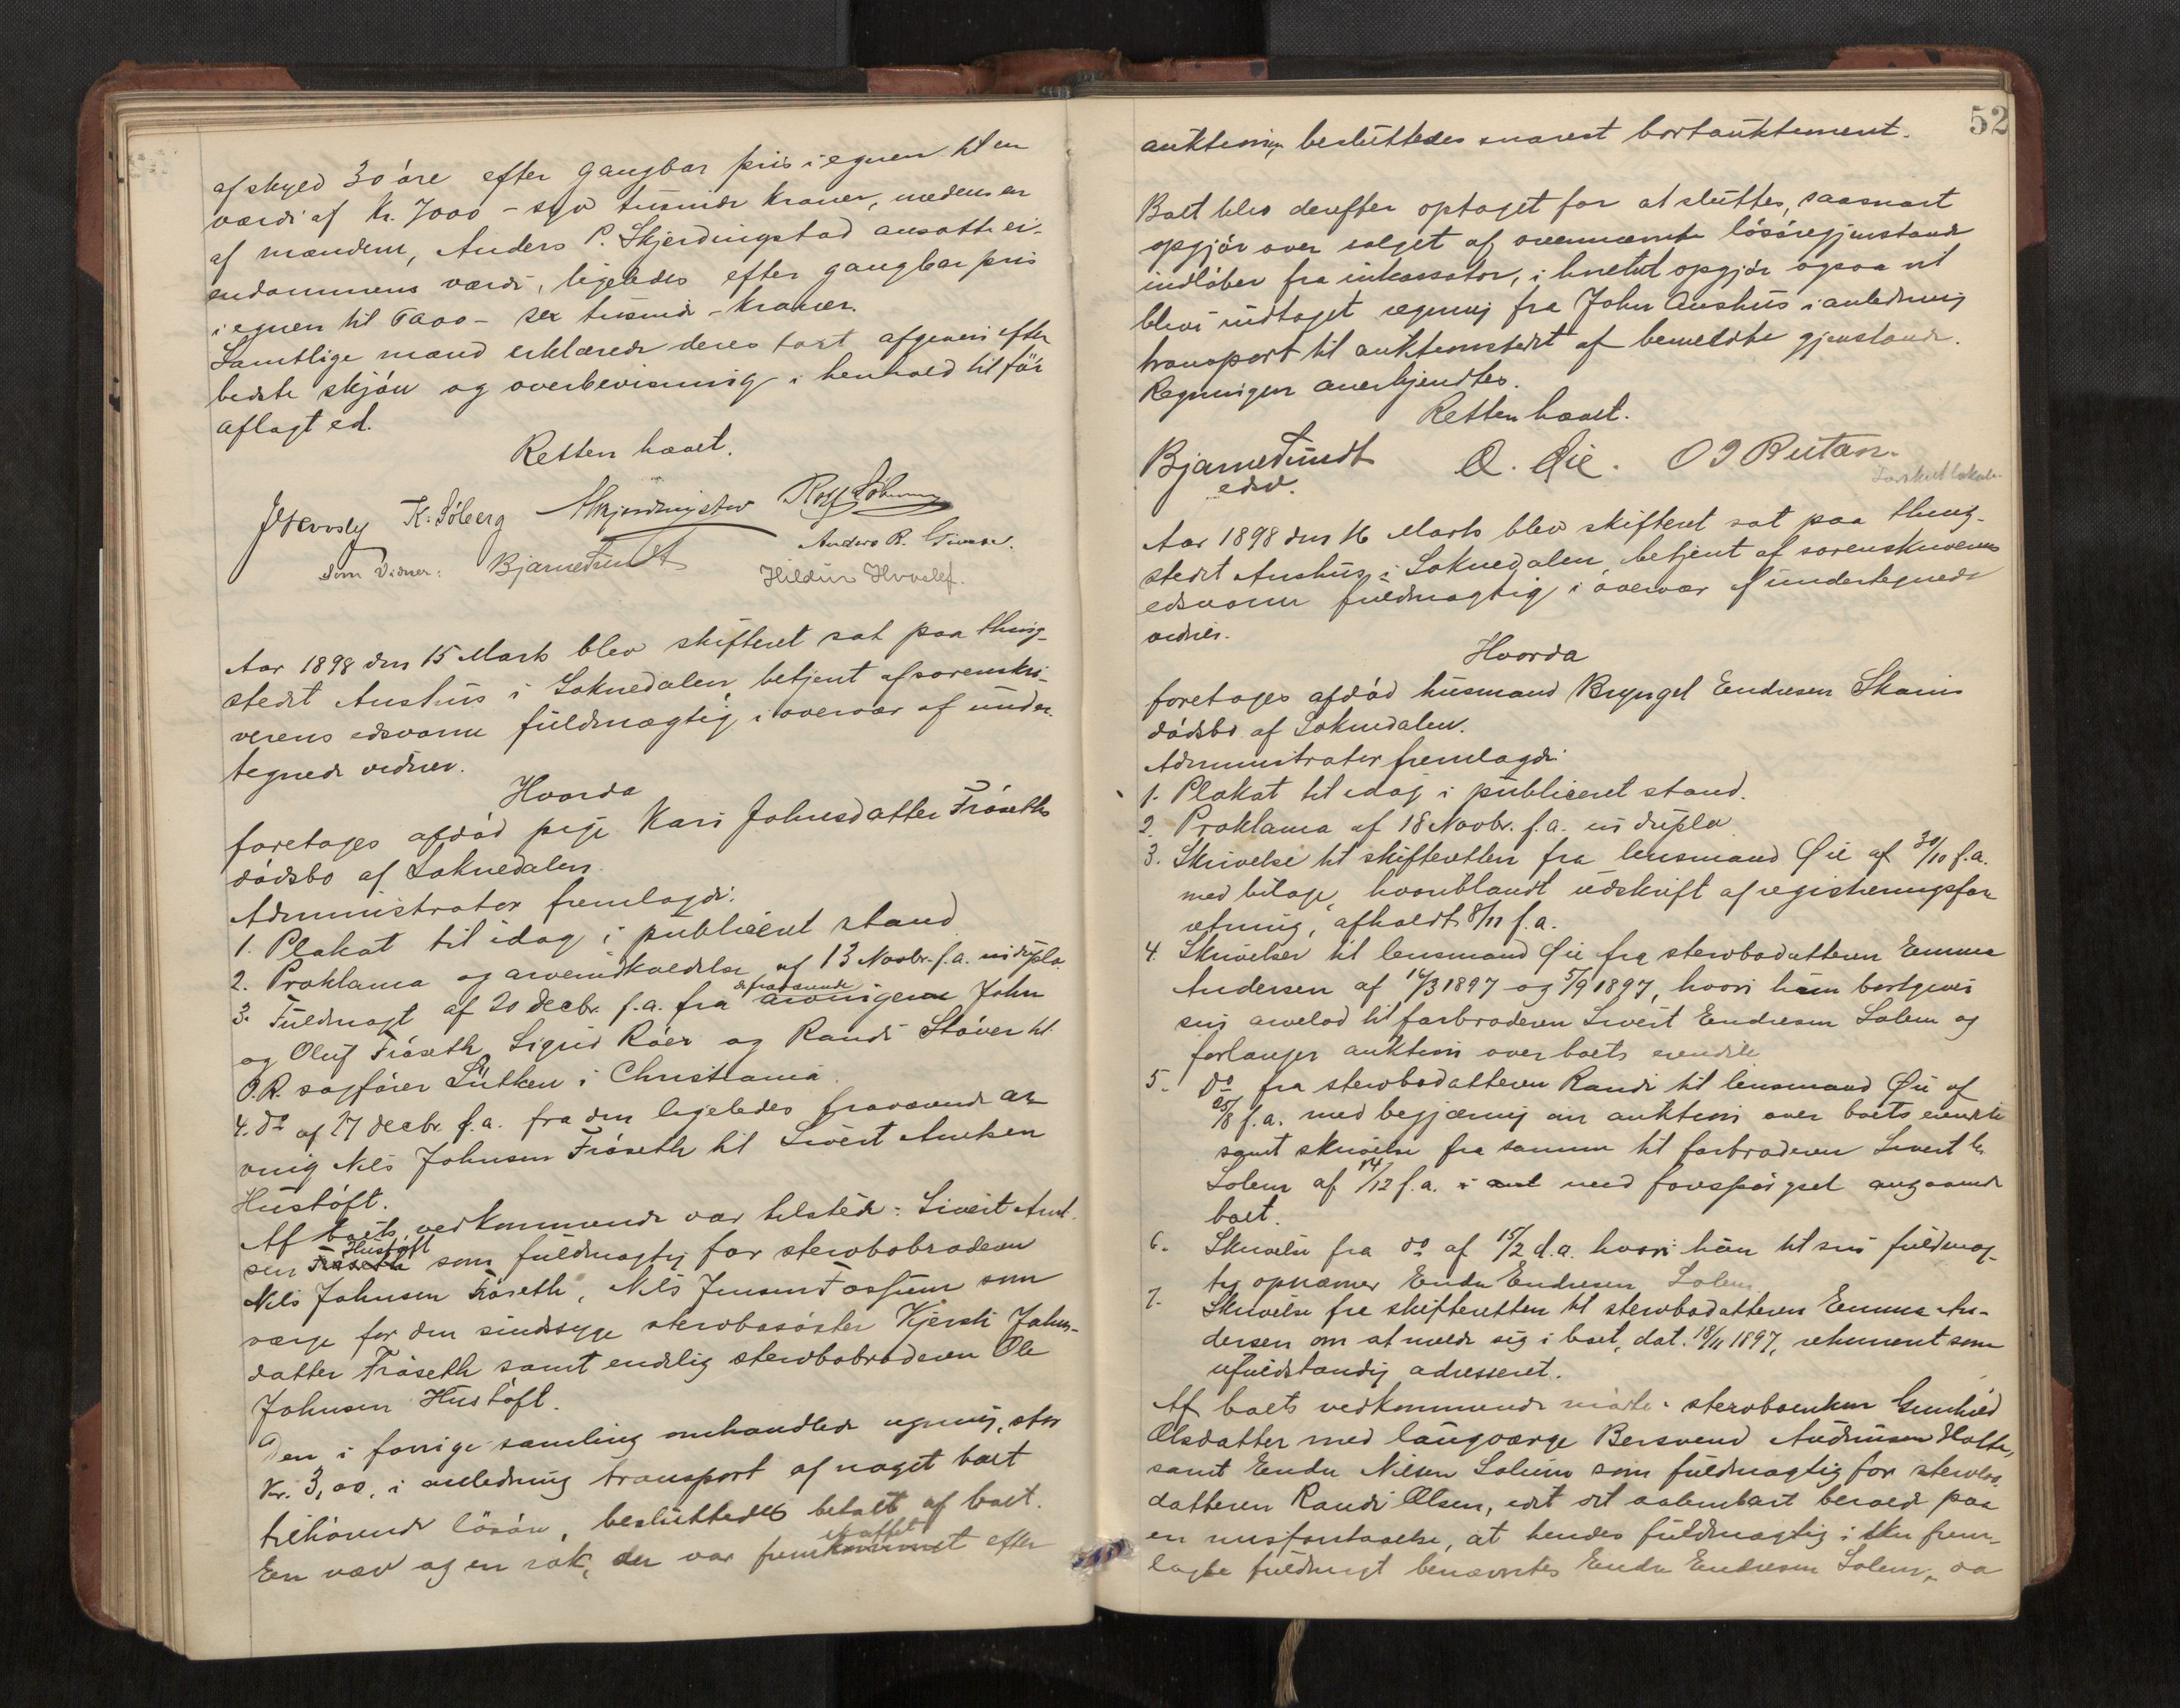 af skyld 30 öre efter gangbar pris i egnen til en
værdi af Kr. 7000 - syv tusinde kroner, medens en
af mændene, Anders P. Skjerdingstad ansatte ei-
endommens værdi, ligeledes efter gangbar pris
i egnen til 6000 - sex tusinde - kroner.
Samtlige mænd erklærede deres taxt afgiven efter
bedste skjön og overbevisning i henhold til för
aflagt ed.
Retten hævet.
K. Söberg Skjerdingstad
Anders R. Gimse.
Som Vidner: Bjarne Tundt Hildur Hvoslef.
Aar 1898 den 15 Marts blev skifteret sat paa thing-
stedet Aushus i Soknedalen, betjent af sorenskri-
verens edsvorne fuldmægtig i overvær af under-
tegnede vidner.
Hvorda
foretoges afdöd pige Kari Johnsdatter Fröseths
dödsbo af Soknedalen.
Administrator fremlagde:
1. Plakat til idag i publiceret stand
2. Proklama og arveindkaldelse af 13 Novbr. f.a. in duplo.
3. Fuldmagt af 20 decbr. f.a. fra de fraværende arvinger John
og Oluf Fröseth, Sigrid Röer og Randi Stöver til
O.R. sagförer Lütken i Christiania.
4. do af 27 decbr. f.a. fra den ligeledes fraværende ar-
ving Nils Johnsen Fröseth til Sivert Arntsen
Hustöft.
Af boets vedkommende var tilstede: Sivert Arnt-
sen Fröseth Hustöft som fuldmægtig for stervbobroderen
Nils Johnsen Fröseth, Nils Jensen Fossum som
værge for den sindssyge stervbosöster Kjersti Johns-
datter Fröseth samt endelig stervbobroderen Ole
Johnsen Hustöft.
Den i forrige samling omhandlede regning, stor
Kr. 3,00, i anledning transport af noget boet
tilhörende lösöre, besluttedes betalt af boet.
En væv og en rok, der var fremkommet skaffet efter
52
auktionen, besluttedes snarest bortauktioneret.
Boet blev derefter optaget for at sluttes, saasnart
opgjör over salget af ovennævnte lösöregjenstande
indlöber fra inkassator, i hvilket opgjör ogsaa vil
blive indtaget regning fra John Aushus i anledning
transport til auktionsstedet af bemeldte gjenstande.
Regningen anerkjendtes.
Retten hævet.
Bjarne Tundt O. Öie. O J Rutan.
edsv.
Aar 1898 den 16 Marts blev skifteret sat paa thing-
stedet Aushus i Soknedalen, betjent af sorenskriverens
edsvorne fuldmægtig i overvær af undertegnede
vidner.
Hvorda
foretoges afdöd husmand Bryngel Endresen Skarns
dödsbo af Soknedalen.
Administrator fremlagde:
1. Plakat til idag i publiceret stand.
2. Proklama af 18 Novbr. f.a. in duplo
3. Skrivelse til skifteretten fra lensmand Öie af 30/10 f.a.
med bilage, hvoriblandt udskrift af registreringsfor-
retning, afholdt 8/11 f.a.
4. Skrivelser til lensmand Öie fra stervbodatteren Emma
Andersen af 14/3 1897 og 5/9 1897, hvori hun bortgiver
sin arvelod til farbroderen Sivert Endresen Solem og
forlanger auktion over boets eiendele
5. do fra stervbodatteren Randi til lensmand Öie af
25/8 f.a. med begjæring om auktion over boets eiendele
samt skrivelse fra samme til farbroderen Sivert E.
Solem af 14/12 f.a. i anl med forespörgsel angaaende
boet.
6. Skrivelse fra do af 15/2 d.a. hvori hun til sin fuldmæg-
tig opnævner Endre Endresen Solem
7. Skrivelse fra skifteretten til stervbodatteren Emma An-
dersen om at melde sig i boet, dat. 18/11 1897, returneret som
ufuldstændig adresseret.
Af boets vedkommende mödte: stervboenken Gunhild
Olsdatter med laugværge Bersvend Andersen Hotte,
samt Endre Nilsen Solem som fuldmægtig for stervbo-
datteren Randi Olsen, idet det aabenbart beroede paa
en misforstaaelse, at hendes fuldmægtig i den frem-
lagte fuldmagt benævntes Endre Endresen Solem, da